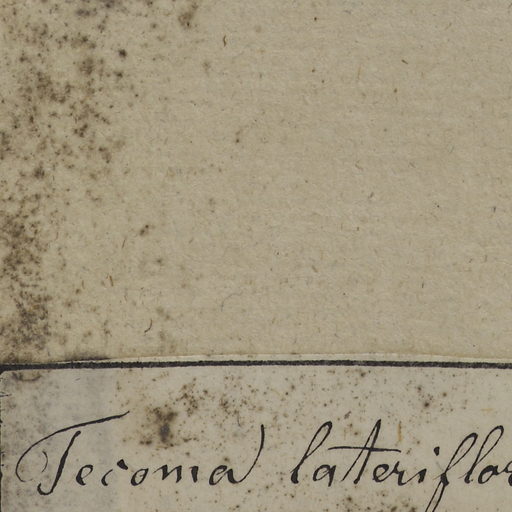 Tecoma lateriflor